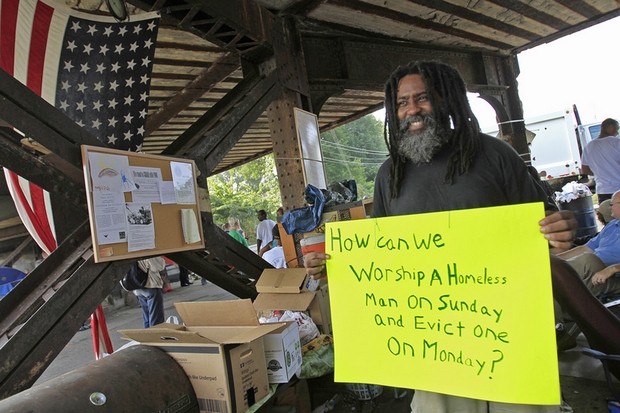 How can we
Worship A Homeless
Man on Sunday
and Evict one
on Monday?